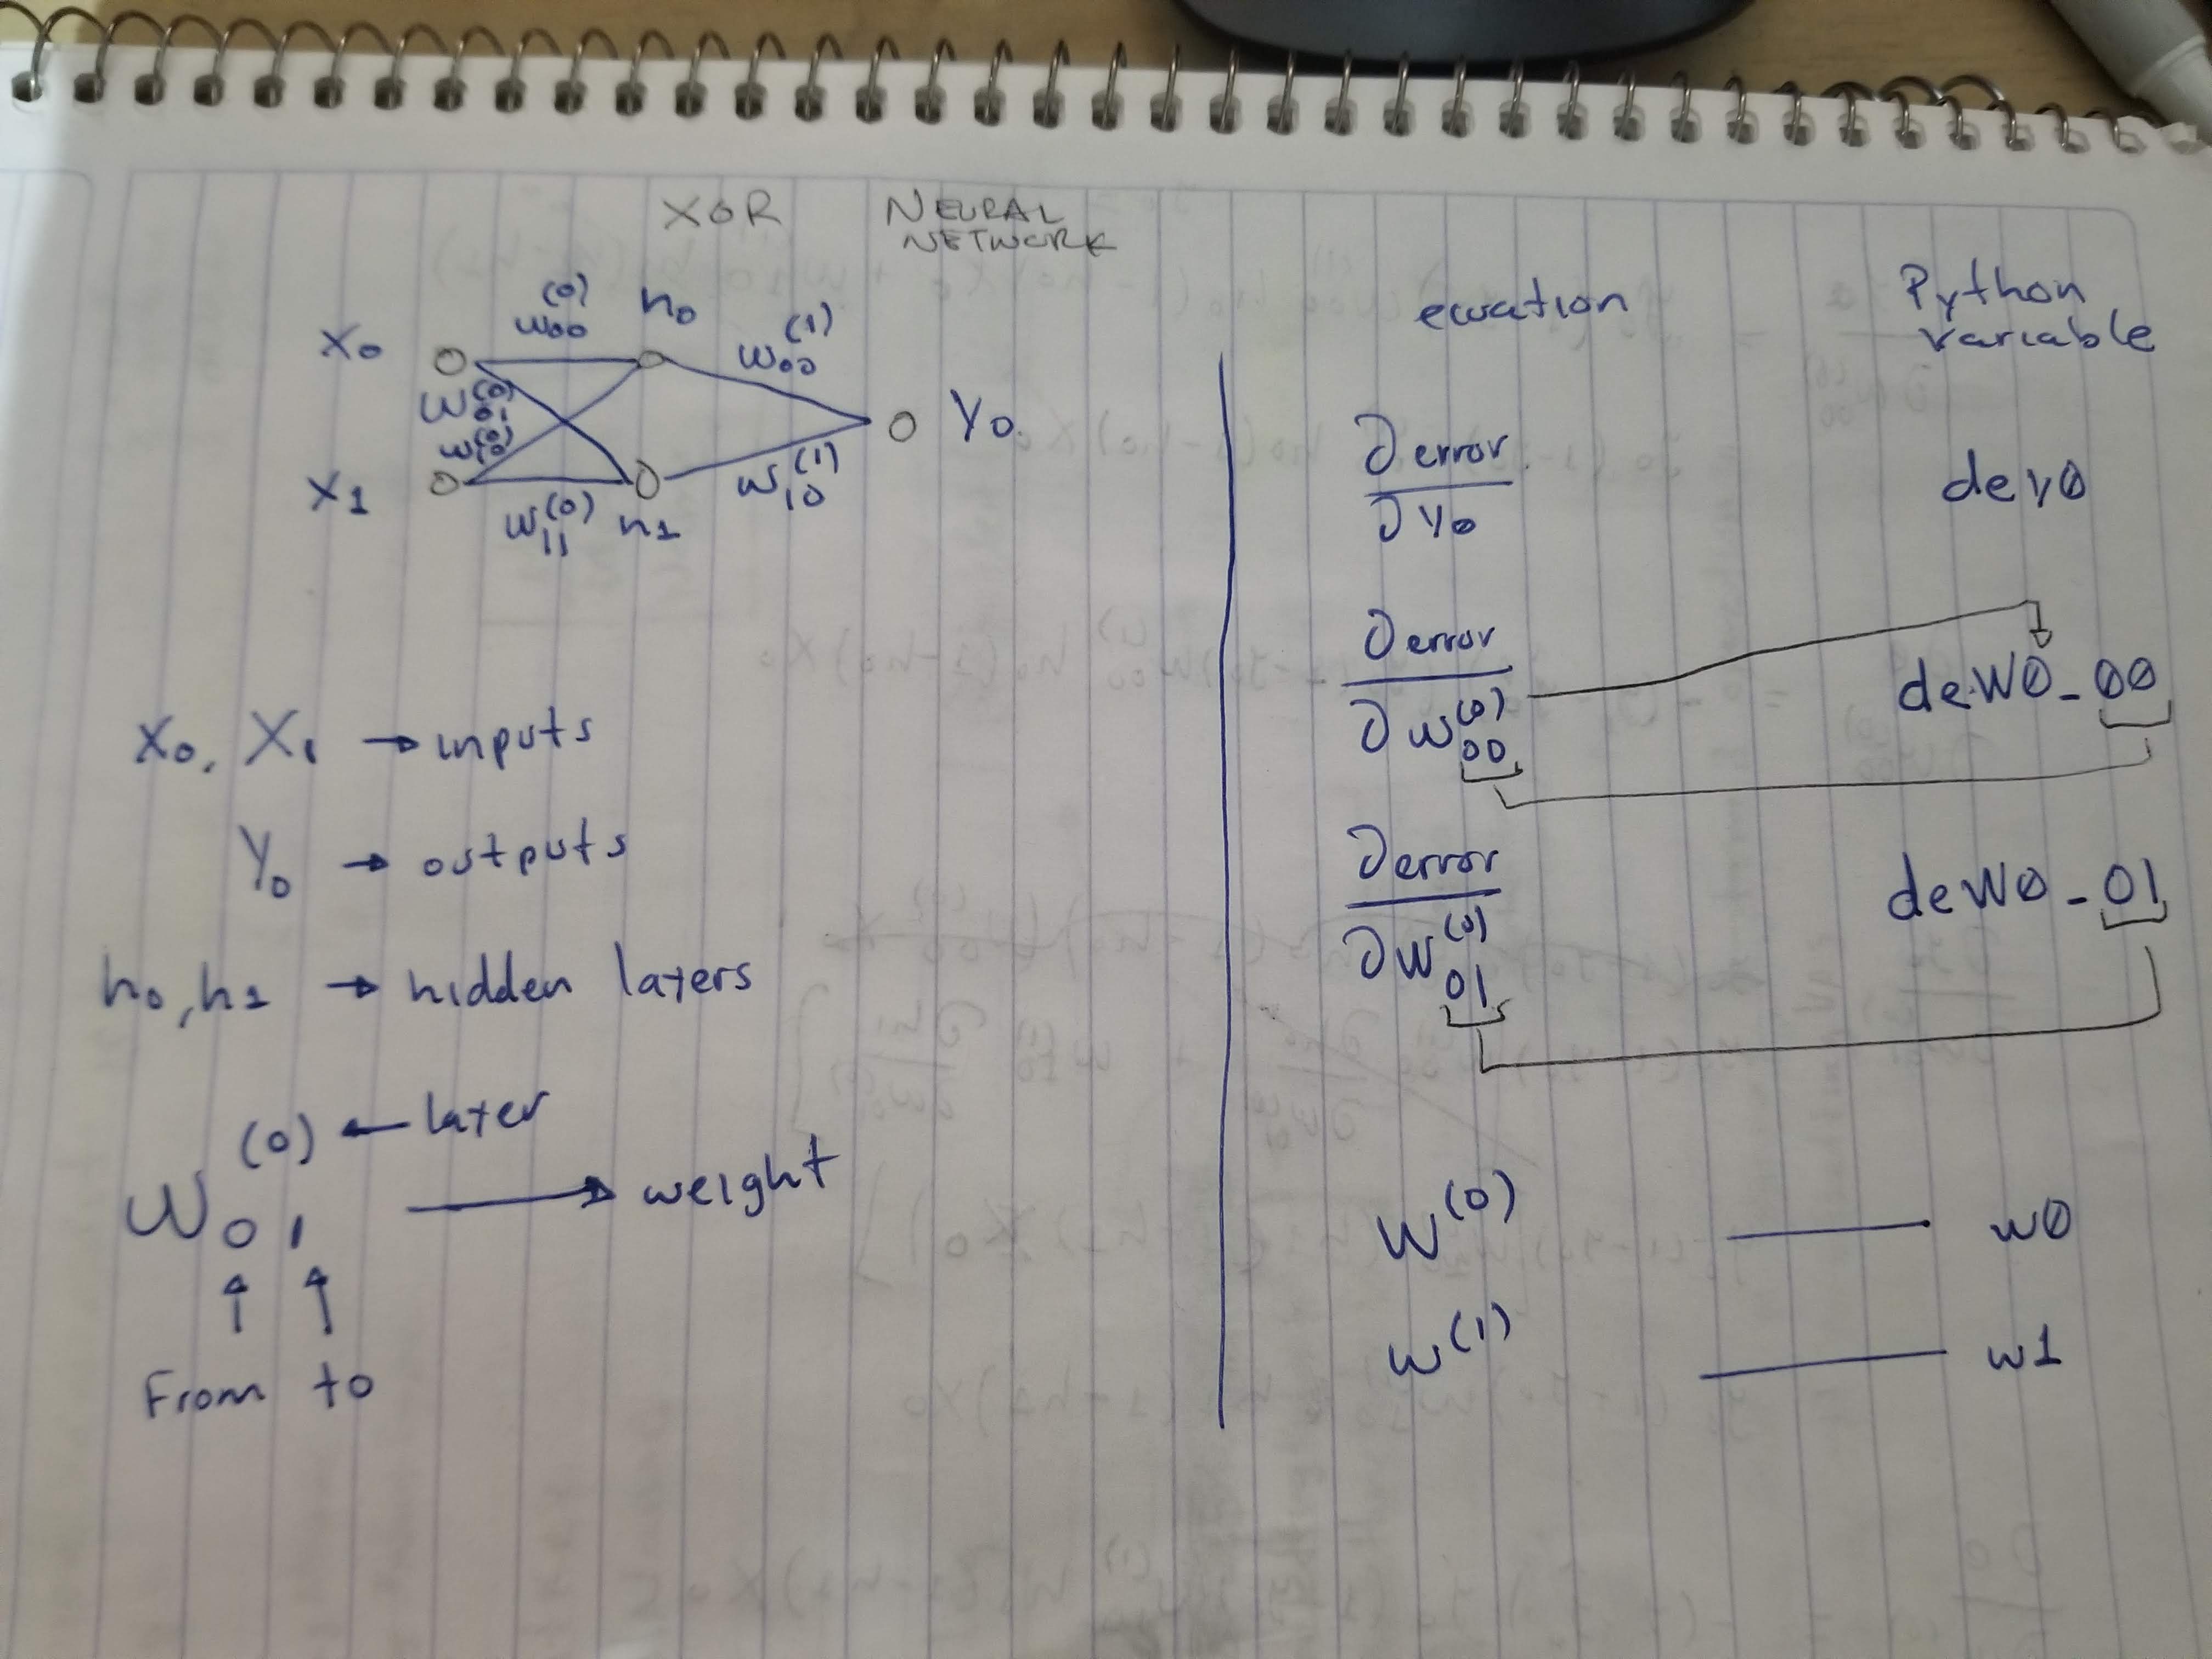 XOR NEURAL
NETWORK
x₀
w₀₀⁽⁰⁾
h₀
w₀₀⁽¹⁾
w₀₁⁽⁰⁾
w₁₀⁽⁰⁾
y₀
x1
w₁₁⁽⁰⁾
h1
w₁₀⁽¹⁾
x₀, x₁ → inputs
y₀ → outputs
h₀, h1 → hidden layers
(0) ← layer
w₀₁ → weight
From to
equation
Python
variable
∂error
∂y₀
dey0
∂error
∂w₀₀⁽⁰⁾
deW0_00
∂error
∂w₀₁⁽⁰⁾
deW0_01
W⁽⁰⁾ — w0
w⁽¹⁾ — w1